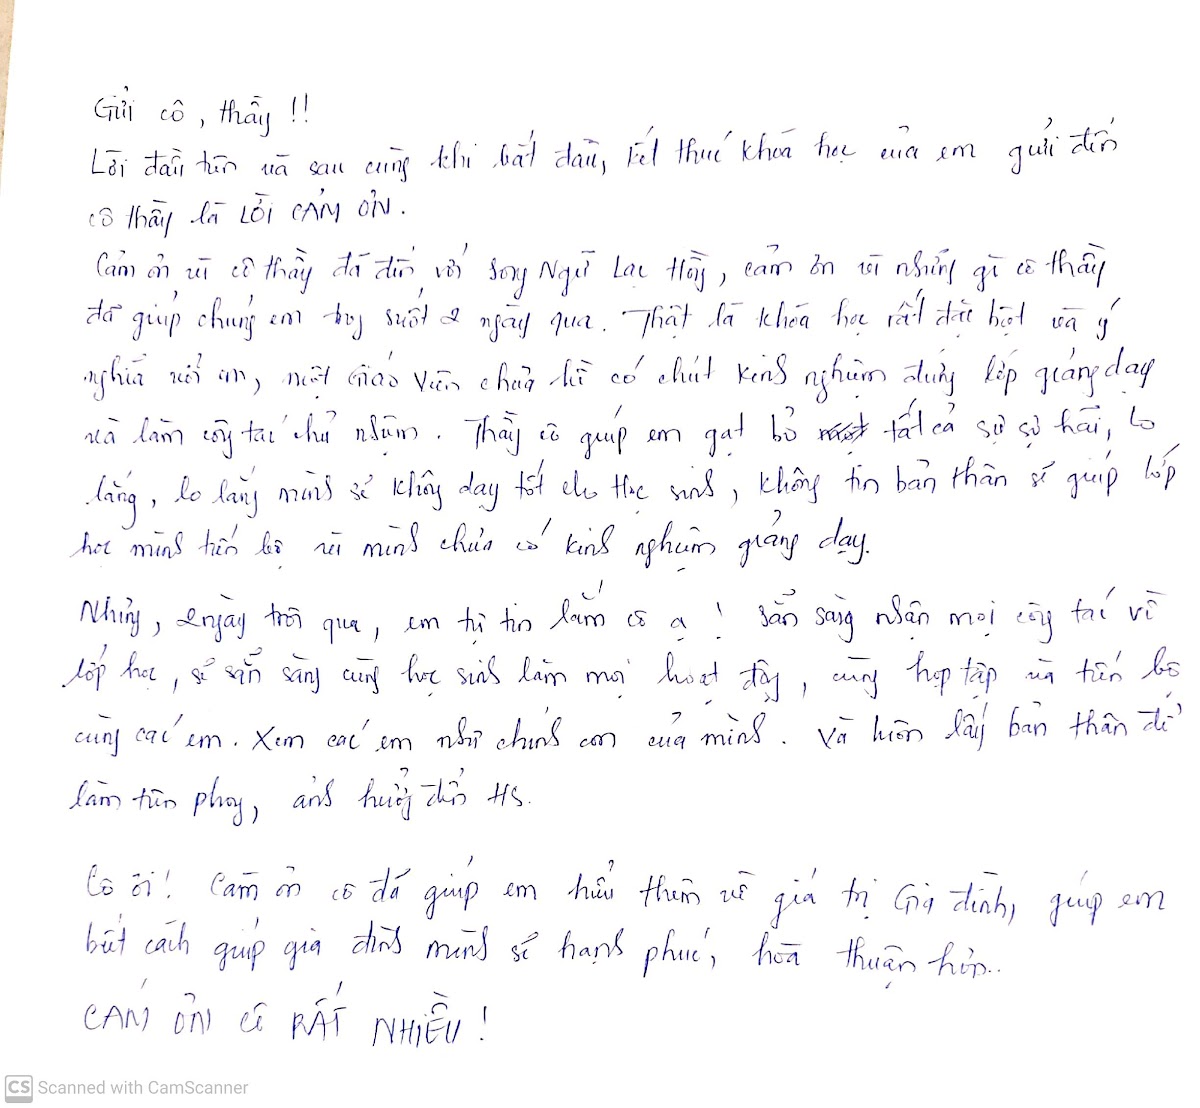 Gửi cô, thầy !!
Lời đầu tiên và sau cùng khi bắt đầu, kết thúc khóa học của em gửi đến
cô thầy là LỜI CẢM ƠN.
Cảm ơn vì cô thầy đã đến với Song Ngữ Lạc Hồng, cảm ơn vì những gì cô thầy
đã giúp chúng em trong suốt 2 ngày qua. Thật là khóa học rất đặc biệt và ý
nghĩa với em, một Giáo viên chưa hề có chút kinh nghiệm đứng lớp giảng dạy
và làm công tác chủ nhiệm. Thầy cô giúp em gạt bỏ tất cả sự sợ hãi, lo
lắng, lo lắng mình sẽ không dạy tốt cho học sinh, không tin bản thân sẽ giúp lớp
học mình tiến bộ vì mình chưa có kinh nghiệm giảng dạy.
Nhưng, 2 ngày trôi qua, em tự tin lắm cô ạ ! Sẵn sàng nhận mọi công tác về
lớp học, sẽ sẵn sàng cùng học sinh làm mọi hoạt động, cùng học tập và tiến bộ
cùng các em. Xem các em như chính con của mình. Và luôn lấy bản thân để
làm tiên phong, ảnh hưởng đến HS.
Cô ơi! Cảm ơn cô đã giúp em hiểu thêm về giá trị Gia đình, giúp em
biết cách giúp gia đình mình sẽ hạnh phúc, hòa thuận hơn..
CẢM ƠN CÔ RẤT NHIỀU !
CS Scanned with CamScanner